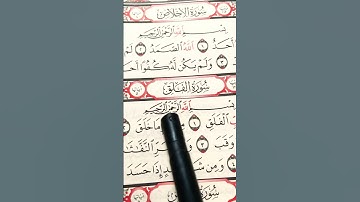 سُورَةُ الإِخْلَاصِ
بِسْمِ اللَّهِ الرَّحْمَٰنِ الرَّحِيمِ
أَحَدٌ ١ اللَّهُ الصَّمَدُ ٢
٣ وَلَمْ يَكُن لَّهُ كُفُوًا أَحَ
سُورَةُ الْفَلَقِ
بِسْمِ اللَّهِ الرَّحْمَٰنِ الرَّحِيمِ
الْفَلَقِ ١ مَا خَلَقَ
وَقَبَ ٣ النَّفَّٰثَٰ
٤ وَمِن شَ إِذَا حَسَدَ
سُورَةُ